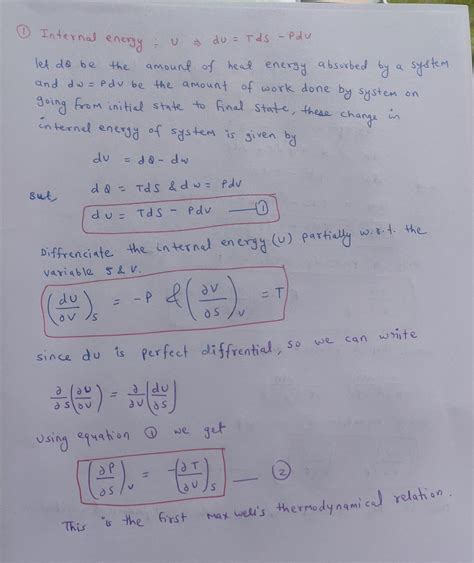 ① Internal energy : U ⇒ dU = Tds - Pdv
let dQ be the amount of heat energy absorbed by a system
and dw = Pdv be the amount of work done by system on
going from initial state to final state, these change in
internal energy of system is given by
dU = dQ - dw
But dQ = Tds & dw = Pdv
dU = Tds - Pdv —— ①
Diffrenciate the internal energy (U) partially w.r.t. the
variable S & V.
(dU/∂V)_S = -P & (∂U/∂S)_V = T
since dU is perfect diffrential, so we can write
∂/∂S (∂U/∂V) = ∂/∂V (dU/∂S)
using equation ① we get
(∂P/∂S)_V = -(∂T/∂V)_S —— ②
This is the first maxwell's thermodynamical relation.